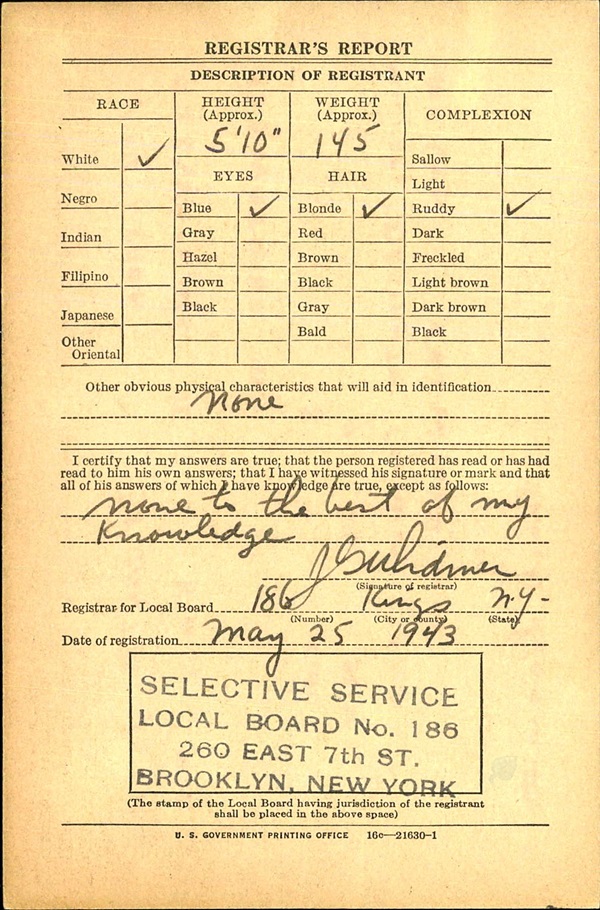 REGISTRAR'S REPORT
DESCRIPTION OF REGISTRANT
RACE
HEIGHT
(Approx.)
WEIGHT
(Approx.)
COMPLEXION
5'10"
145
White ✓
Negro
Indian
Filipino
Japanese
Other
Oriental
EYES
Blue ✓
Gray
Hazel
Brown
Black
HAIR
Blonde ✓
Red
Brown
Black
Gray
Bald
Sallow
Light
Ruddy ✓
Dark
Freckled
Light brown
Dark brown
Black
Other obvious physical characteristics that will aid in identification
None
I certify that my answers are true; that the person registered has read or has had
read to him his own answers; that I have witnessed his signature or mark and that
all of his answers of which I have knowledge are true, except as follows:
none to the best of my
Knowledge
(Signature of registrar)
Registrar for Local Board 186 Kings N.Y-
(Number) (City or county) (State)
Date of registration May 25 1943
SELECTIVE SERVICE
LOCAL BOARD No. 186
260 EAST 7th ST.
BROOKLYN, NEW YORK
(The stamp of the Local Board having jurisdiction of the registrant
shall be placed in the above space)
U. S. GOVERNMENT PRINTING OFFICE 16c—21630-1